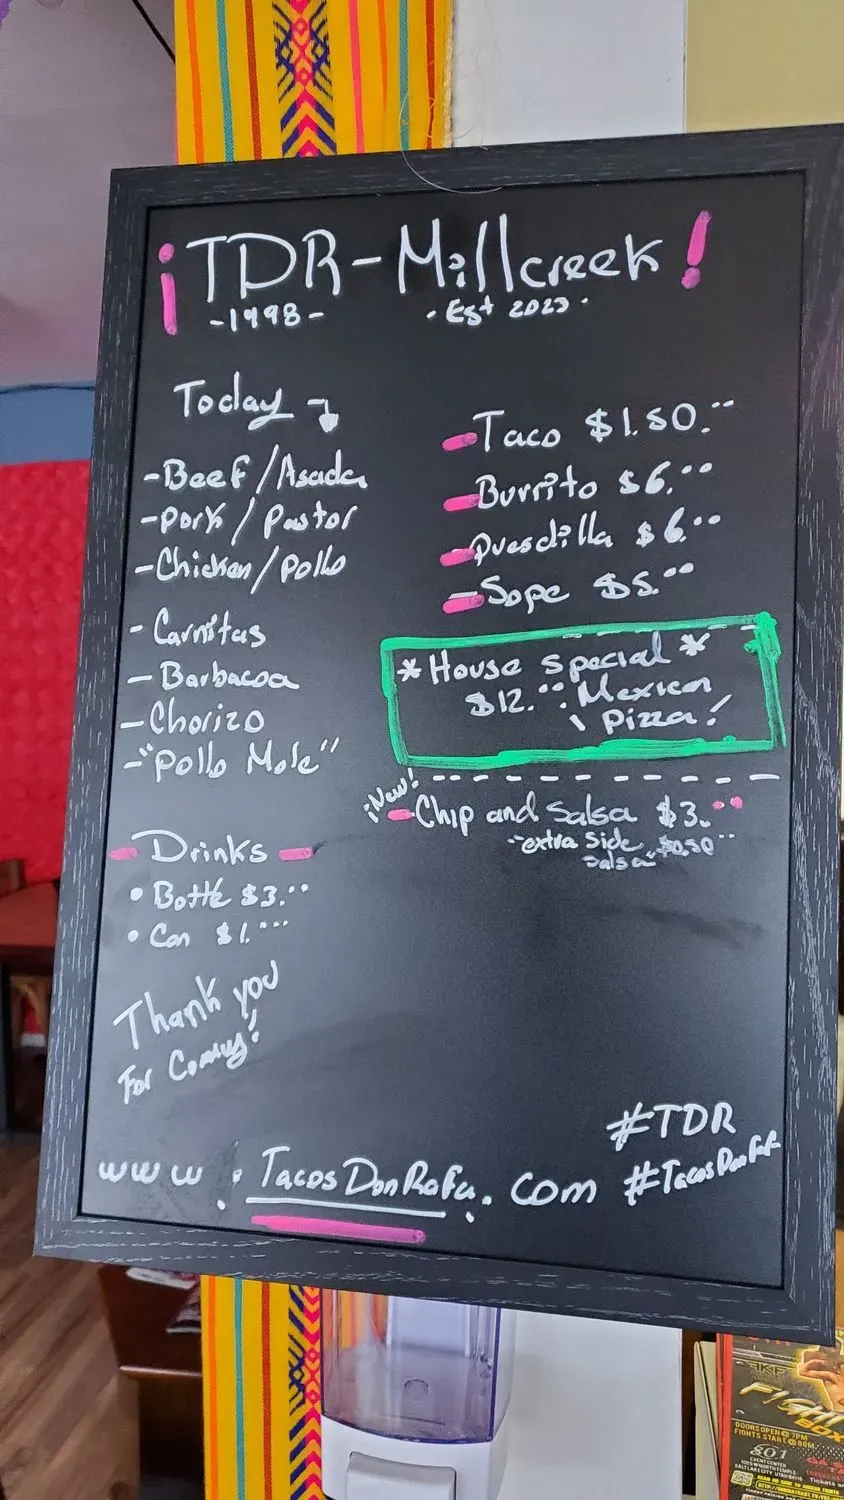 ¡TDR-Millcreek!
-1998-
· Est 2023 ·
Today
-Beef/Asada
-Pork/Pastor
-Chicken/Pollo
- Carnitas
- Barbacoa
- Chorizo
-"Pollo Mole"
- Drinks -
• Bottle $3.00
• Can $1.00
Thank you
For Coming!
-Taco $1.50.
-Burrito $6.00
-Quesdilla $6.00
-Sope $5.00
*House Special*
$12.00 Mexican
Pizza!
¡New!
-Chip and Salsa $3.00
"extra side
salsa" $0.50
#TDR
#TacosDonRafa
www.TacosDonRafa.com
FIGHT
BOX
DOORS OPEN @ 7PM
FIGHTS START @ 8PM
801
EVENT CENTER
SALT LAKE CITY, UTAH 84116
Tickets